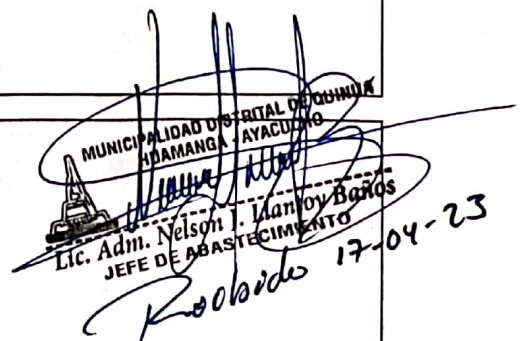 MUNICIPALIDAD DISTRITAL DE QUINUA
HUAMANGA - AYACUCHO
Lic. Adm. Nelson I. Llantoy Baños
JEFE DE ABASTECIMIENTO
Recibido 17-04-23